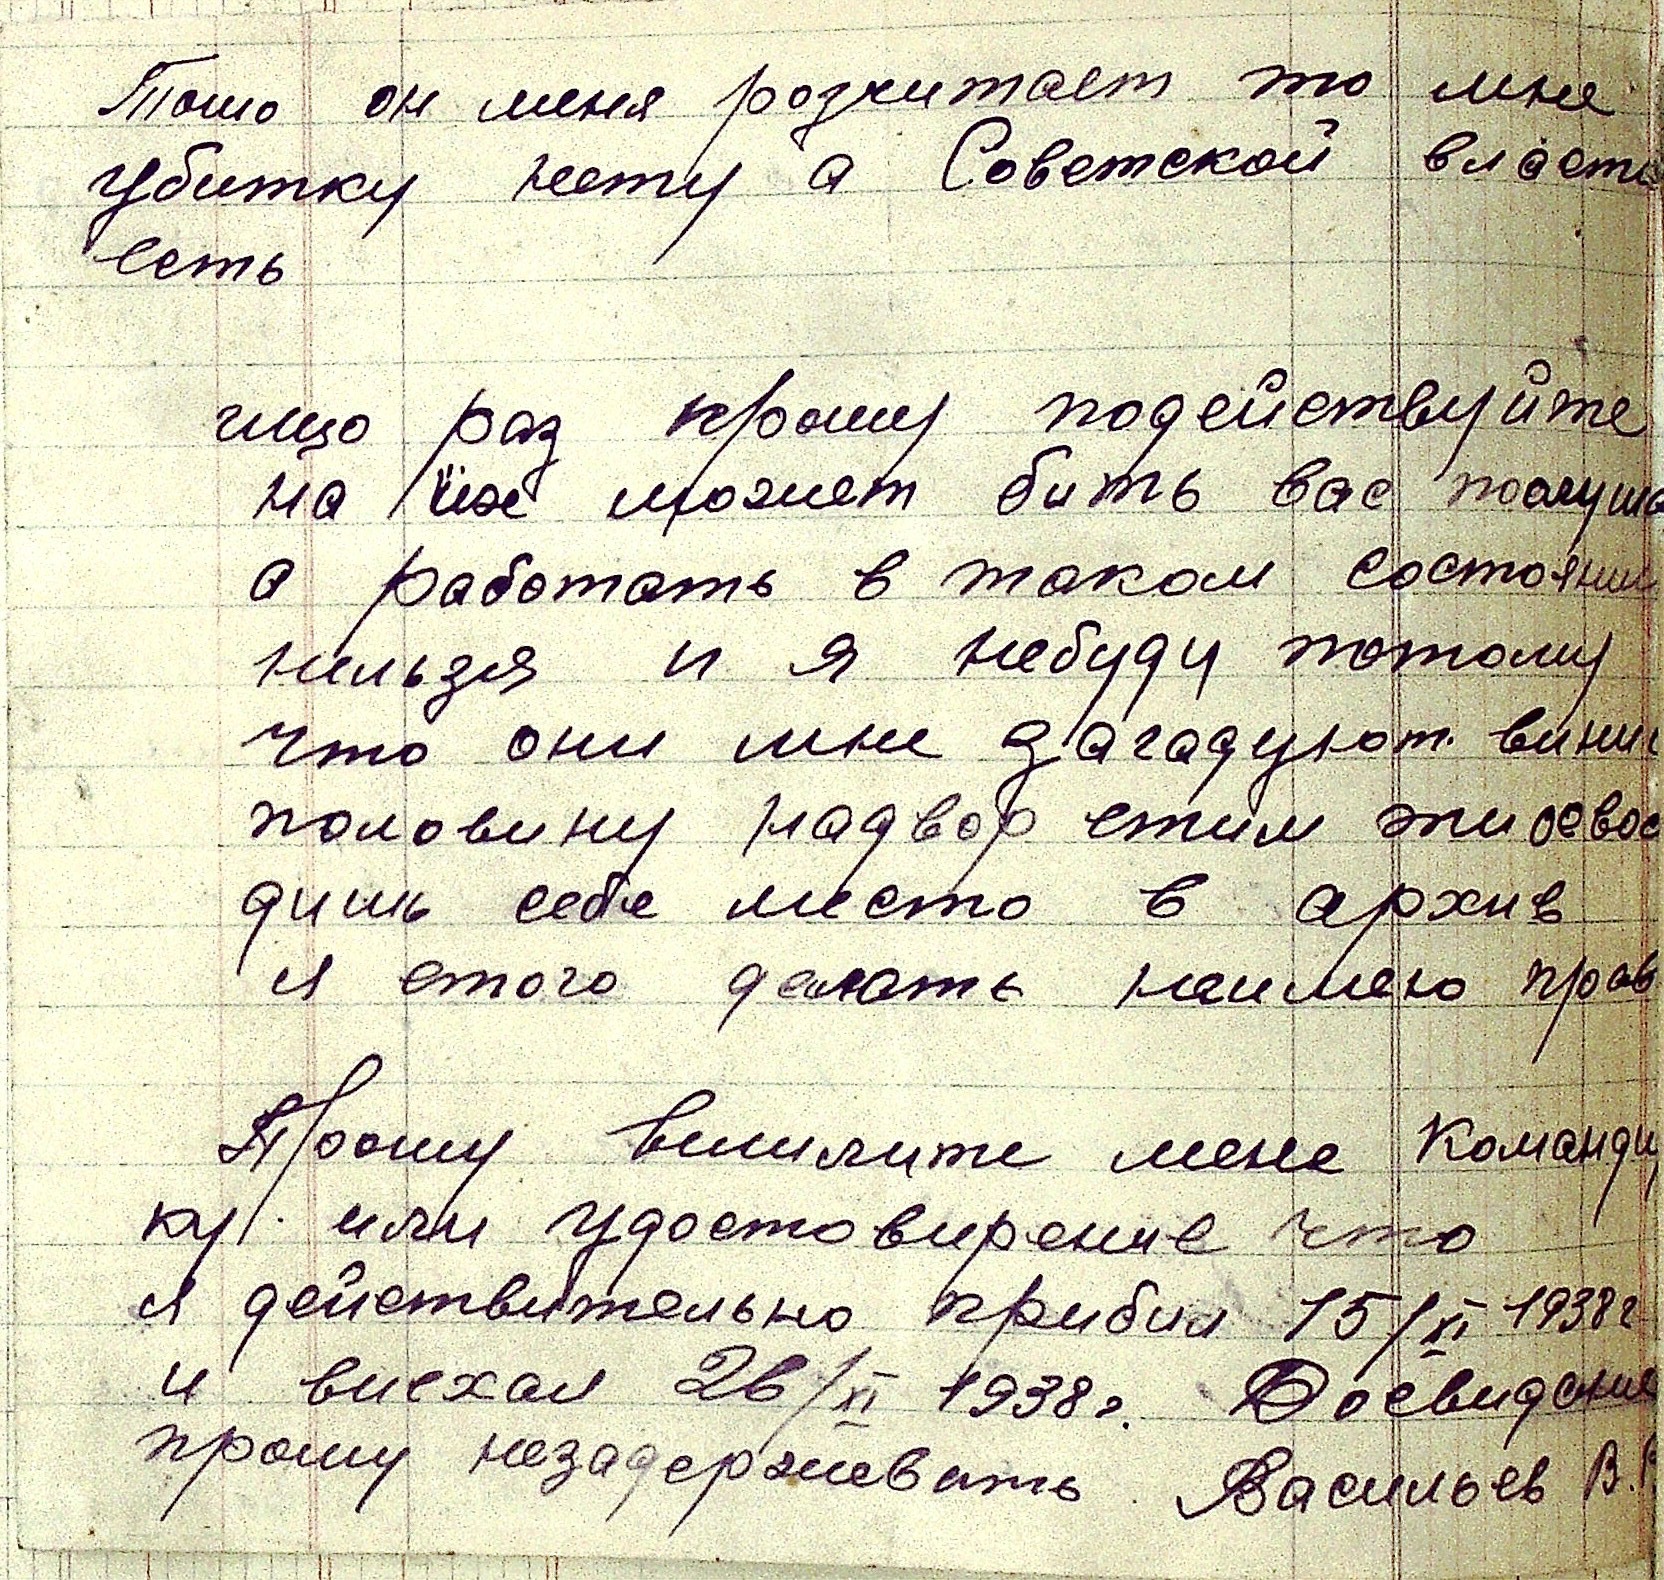 Тошо он меня розчитает то мне
убитку нету а Советской власти
есть
ищо раз прошу подействуйте
на їх может бить вас послуша
а работать в таком состоянии
нильзя и я небуду потому
что они мне загадуют
половину надвор етим
дишь себе место в архив
я етого делать неимею прав
Прошу вишлите мене Команди
ку или удостовирение что
я действительно прибил 15/XI 1938г
и виехал 26/XI 1938г. Досвидание
прошу незадерживать Васильев В.